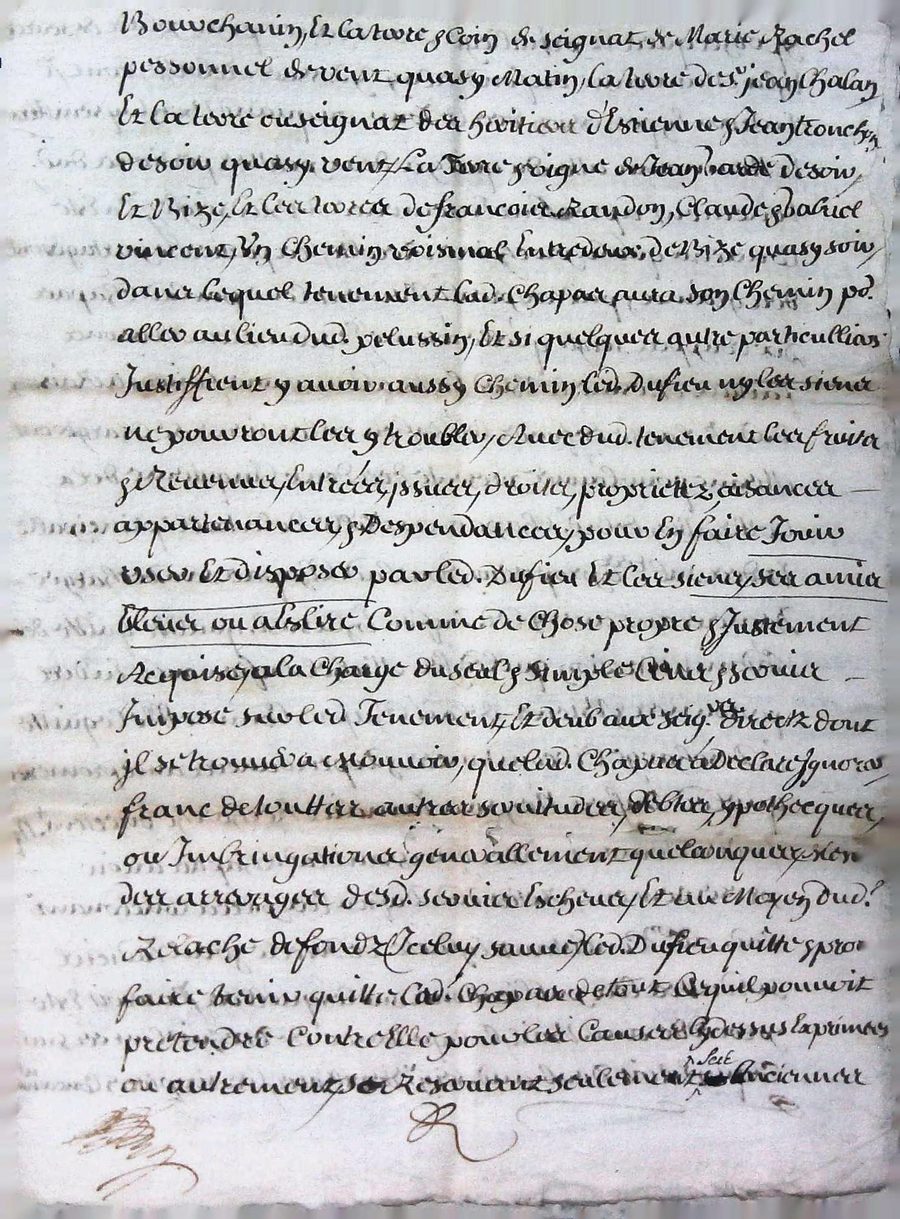 Bouvchanin, Et la terre & coin de seignat de Marie Rachel
personnel de vent quasy Matin, la terre de Sr jean Chalan
Et la terre ou seignat des heritiers d'Estienne & Jean tronch
de soir quasy vent, La Terre & vigne de Jean barde de soir
Et Bize, Et les terres de francois Randon, Claude & Gabriel
vincent, Un Chemin Entredeux, de Bize quasy soir
dans lequel tenement lad. Chapas aura son Chemin pr.
aller au lieu dud. pelussin, Et si quelques autre particulliers
Justiffient y avoir aussy Chemin led. Dufieu ny les siens
ne pourront les y troubler, Avec dud. tenement les fruits
& Revenus, Entrées, issues, droits, proprietez, aisances
appartenances, & Despendances, pour En faire Jouir
user Et disposer par led. Dufieu Et les siens, ses amis
Esleus ou a Eslire Comme de Chose propre & Justement
Acquise, a la Charge du seul & simple Cens & servis
Impose sur led. Tenement, Et deub aux seigrs. directz dont
jl se trouvera Mouvoir, que lad. Chapas a Declare Ignorer
franc de touttes autres servitudes, debtes, ypotheques,
ou Imbringations generallement quelconques,
des arrerages desd. servis Escheus, Et au Moyen dud.
Relache de fondz Iceluy sauve, led. Dufieu quitte & pro
faire tenir quitte lad. Chapas de tout Ce quil pouvoit
pretendre Contre Elle pour les Causes Cydessus Exprimees
ou autrement, se Reservant seulement sect anciennes